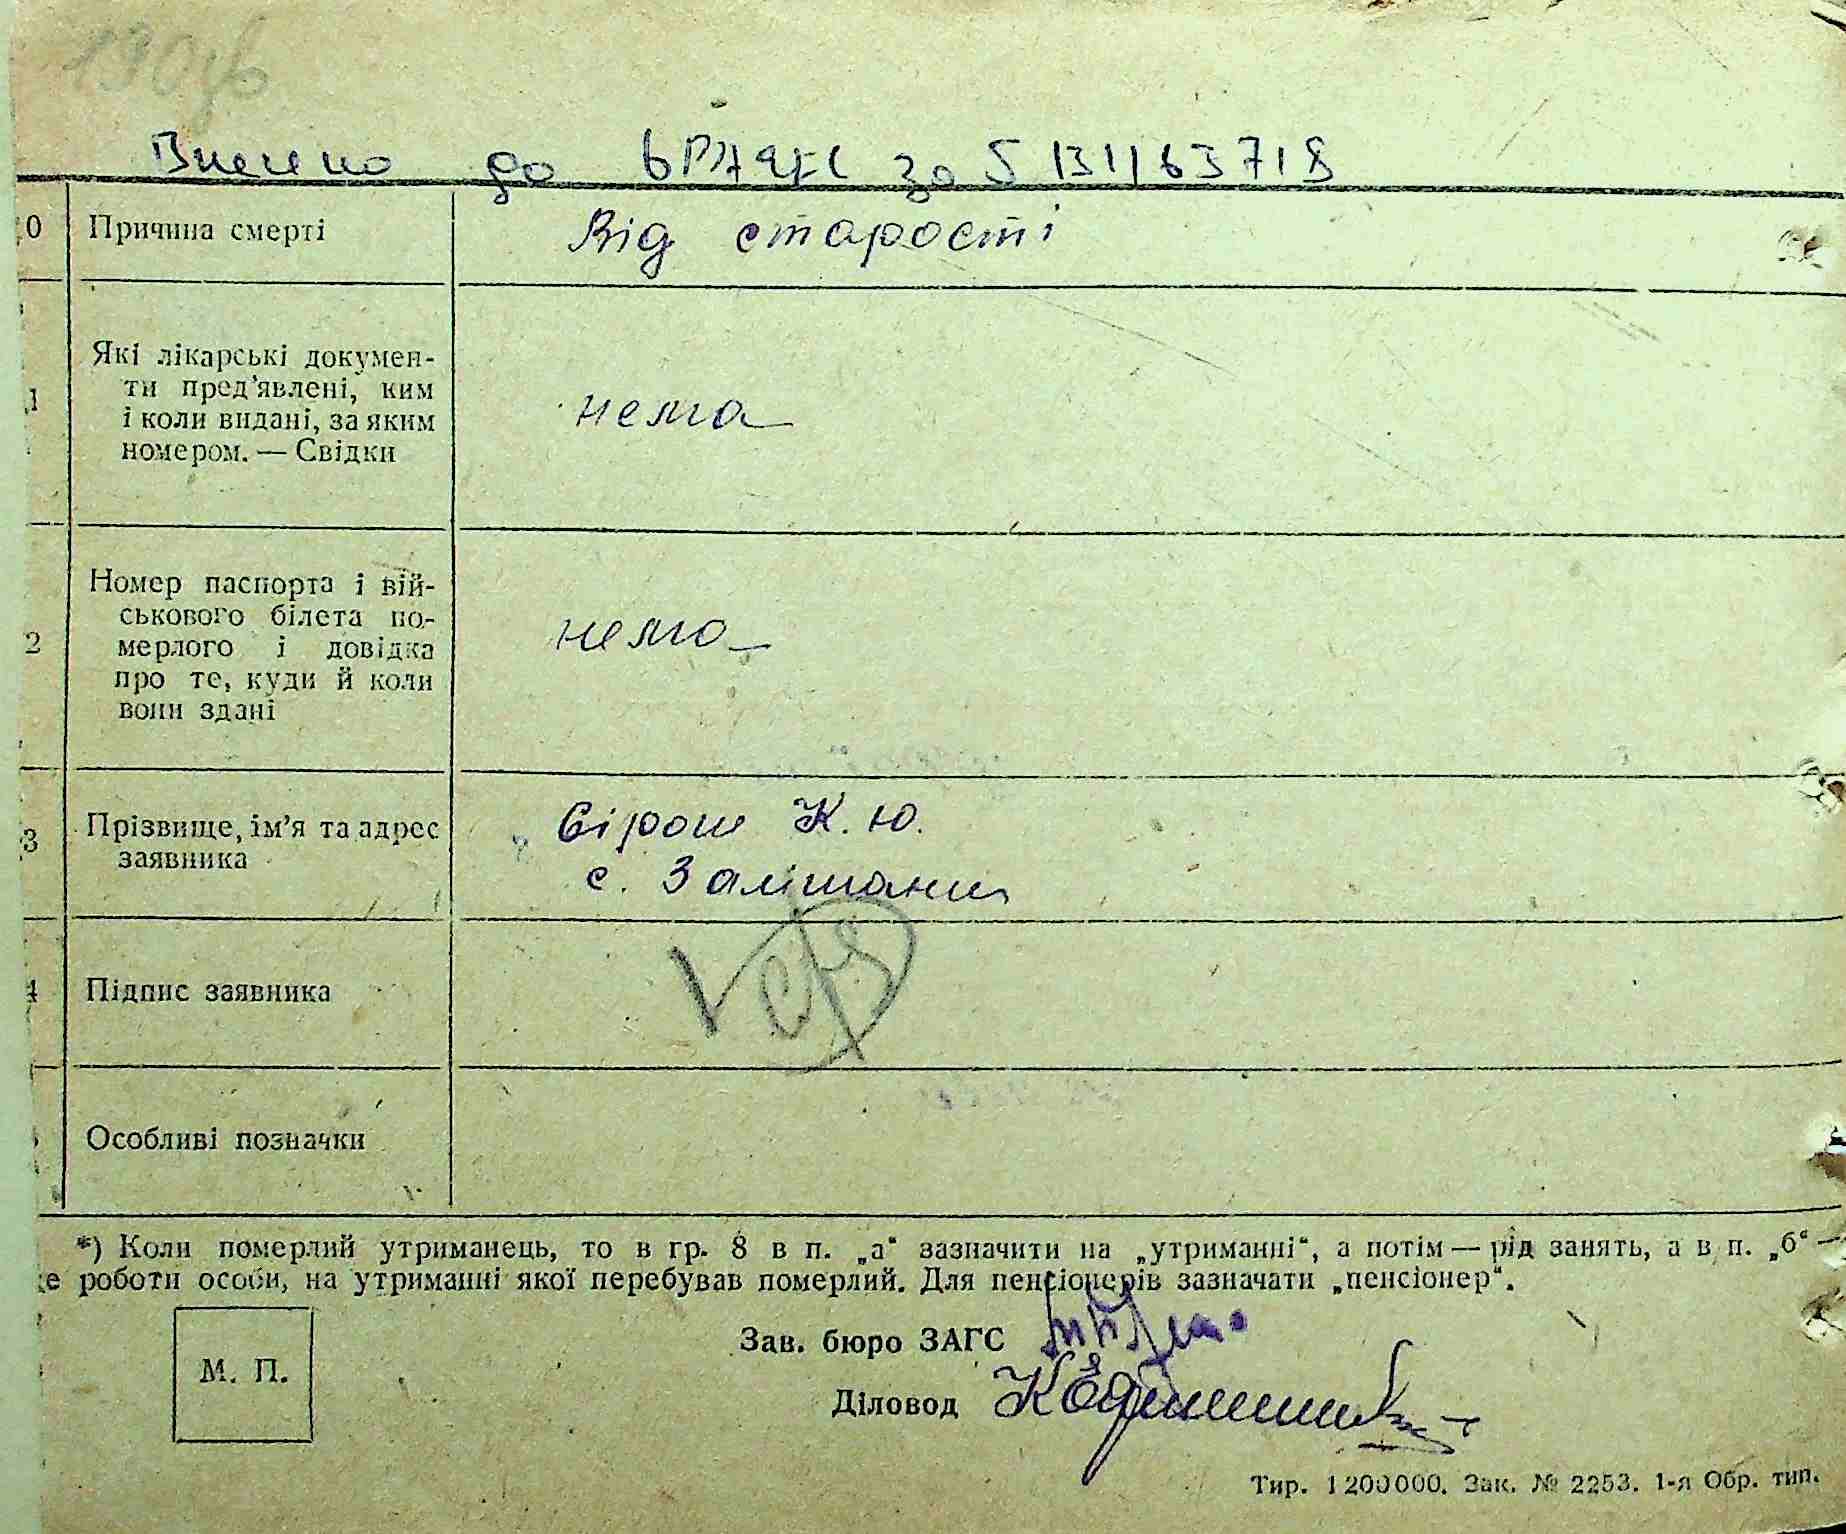 Внесено до за 5131163718
0 Причина смерті Від старості
1 Які лікарські докумен-
ти пред'явлені, ким
і коли видані, за яким
номером. — Свідки
нема
2 Номер паспорта і вій-
ськового білета по-
мерлого і довідка
про те, куди й коли
вони здані
нема
3 Прізвище, ім'я та адрес
заявника
Сірош К. Ю.
с. Заліщани
4 Підпис заявника
Особливі позначки
*) Коли померлий утриманець, то в гр. 8 в п. „а“ зазначити на „утриманні“, а потім — рід занять, а в п. „б“ —
е роботи особи, на утриманні якої перебував померлий. Для пенсіонерів зазначати „пенсіонер“.
Зав. бюро ЗАГС
М. П.
Діловод
Тир. 1200000. Зак. № 2253. 1-я Обр. тип.